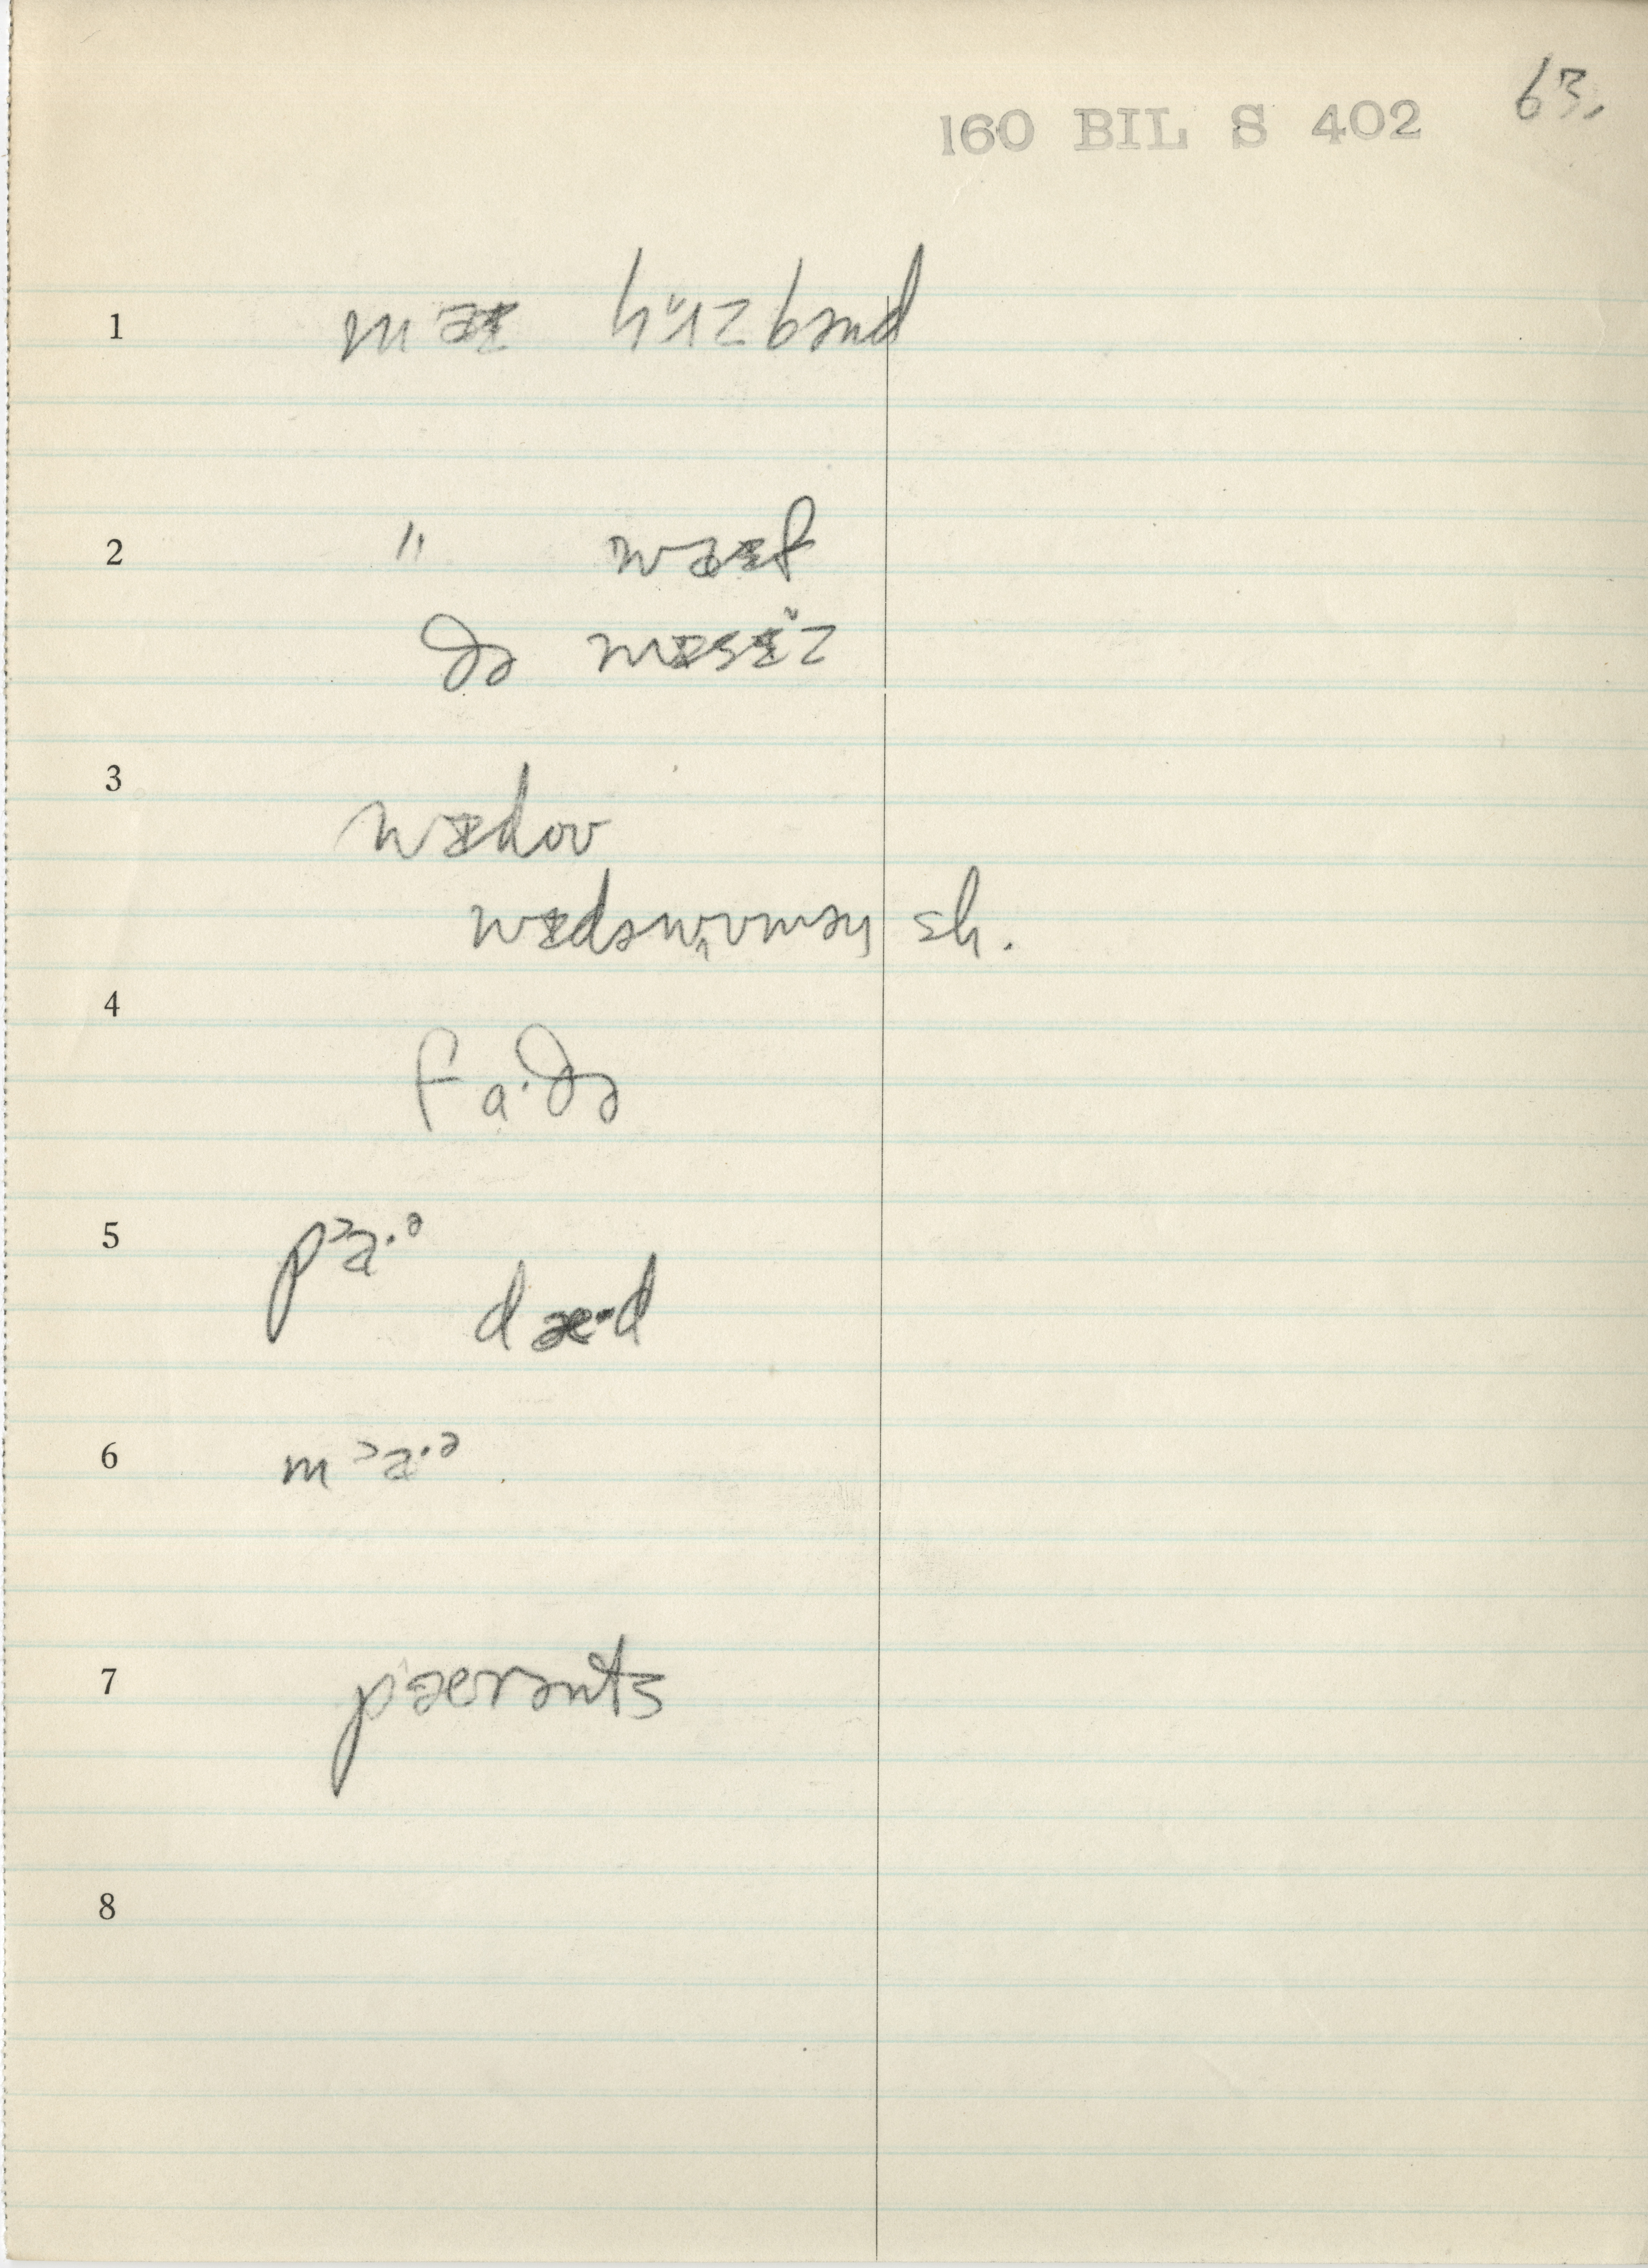 63.
160 BIL S 402
1 maɪ hʌzbənd
2 " waɪf
ðə mɪsɪz
3 wɪdoʊ
sh.
4 fa·ðə
5 pᵓa·ᵊ
dæ·d
6 mᵓa·ᵊ
7 pærənts
8